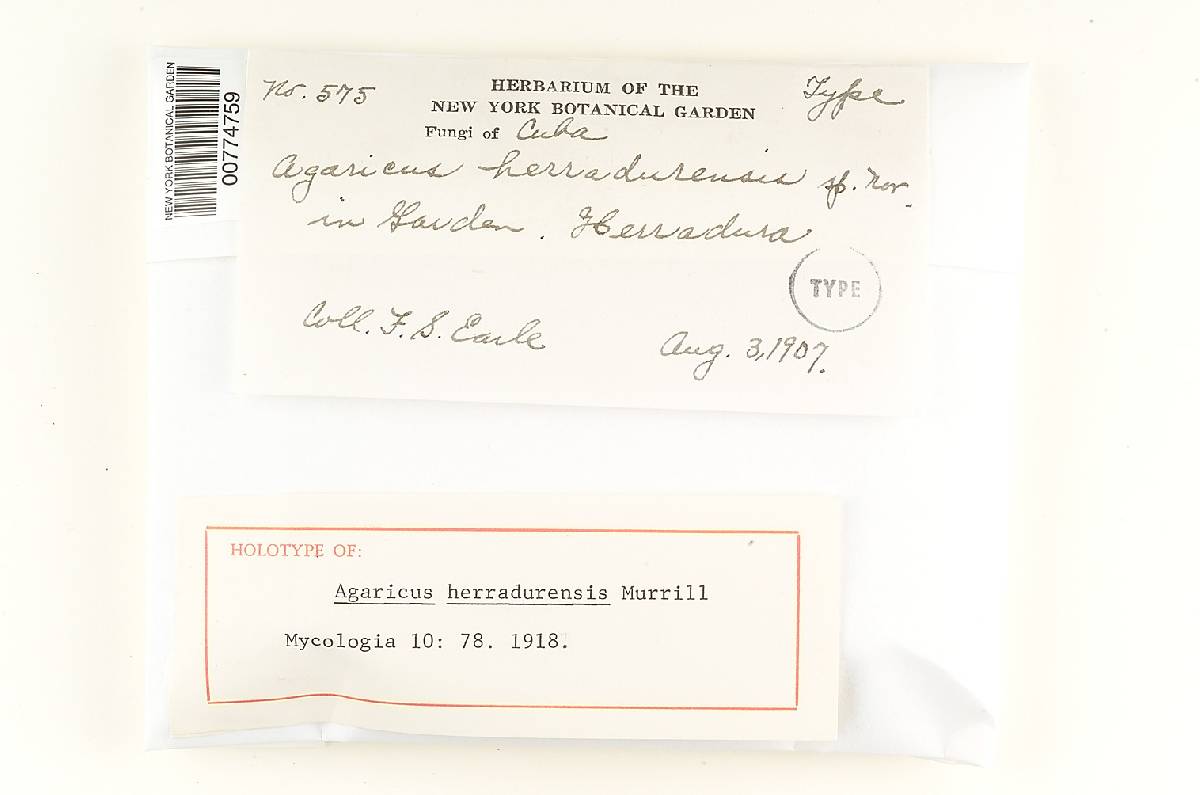 NEW YORK BOTANICAL GARDEN
00774759
No. 575
HERBARIUM OF THE
Type
NEW YORK BOTANICAL GARDEN
Fungi of Cuba
Agaricus herradurensis sp. nov.
in Garden. Herradura
TYPE
Coll. F. S. Earle
Aug. 3, 1907.
HOLOTYPE OF:
Agaricus herradurensis Murrill
Mycologia 10: 78. 1918.